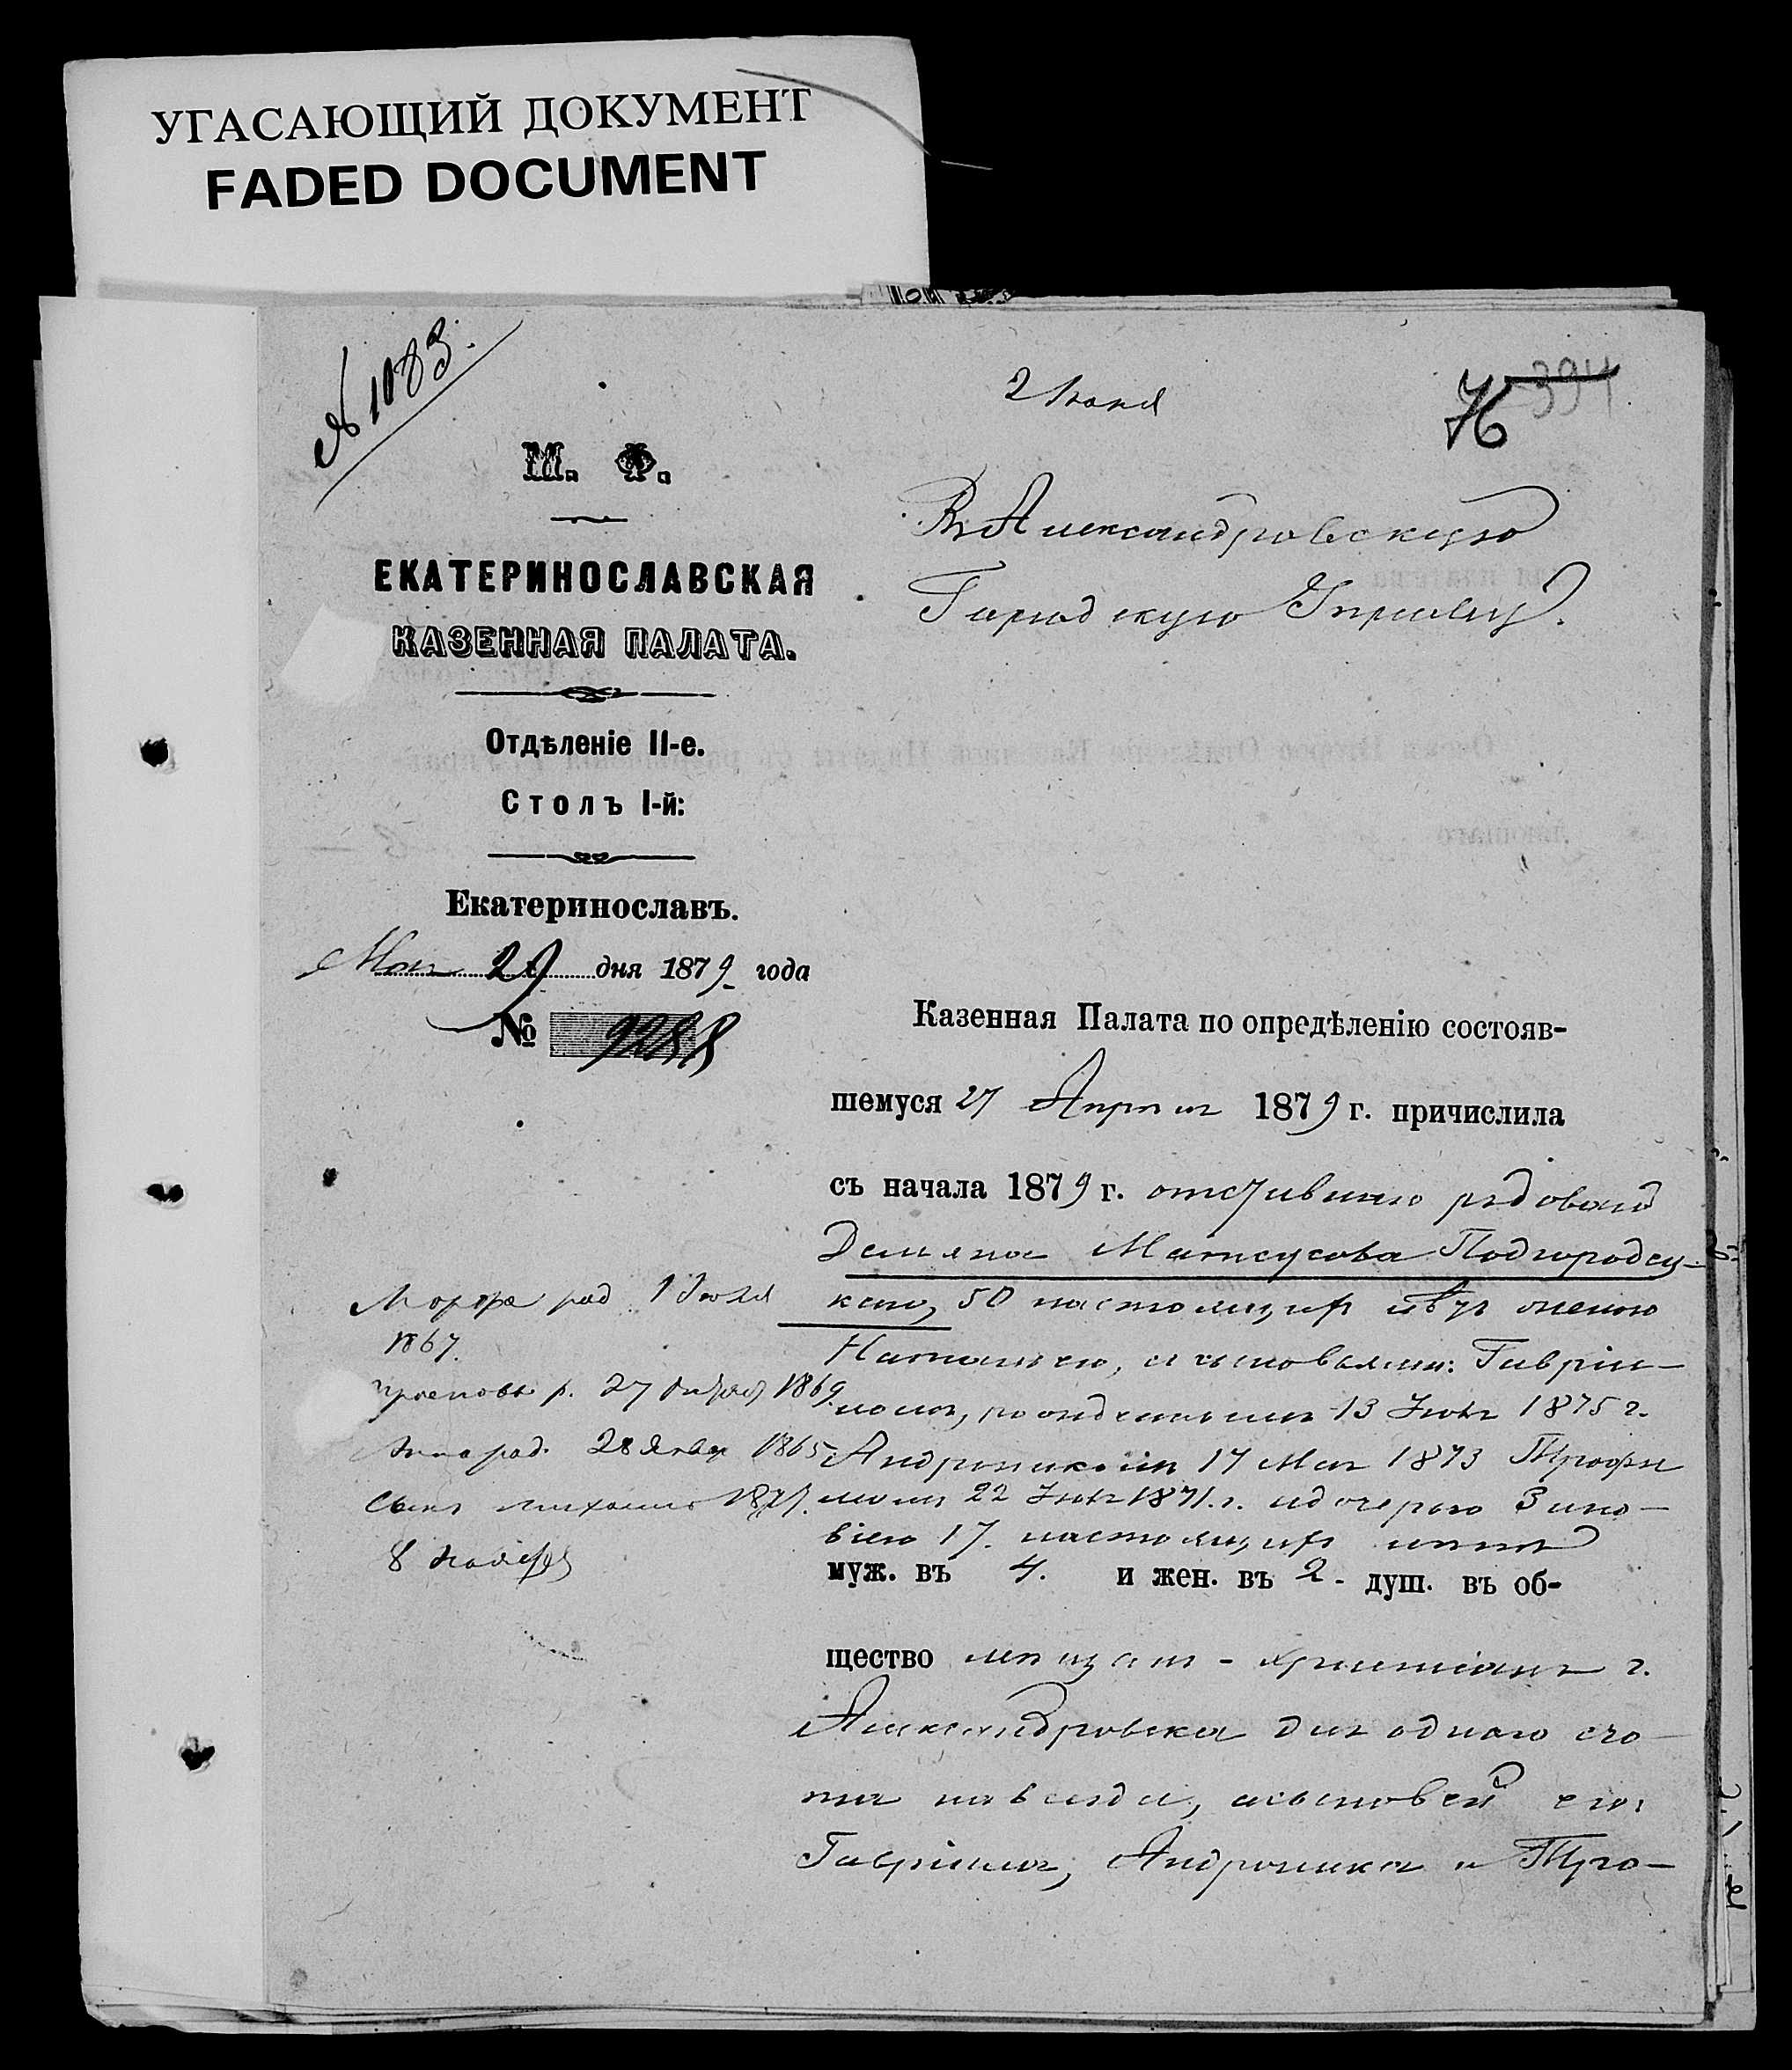 УГАСАЮЩИЙ ДОКУМЕНТ
FADED DOCUMENT
№ 1083.
2 Июня
394
76
М. Ф.
ЕКАТЕРИНОСЛАВСКАЯ
КАЗЕННАЯ ПАЛАТА.
Отдѣленіе II-е.
Столъ I-й:
Екатеринославъ.
Мая 29 дня 1879 года
№ 9288
Въ Александровскую
Городскую Управу.
Казенная Палата по опредѣленію состояв-
шемуся 27 Апрѣля 1879 г. причислила
съ начала 1879 г. рядоваго
Демьяна Подгородец-
каго, 50 настоящихъ женою
Натальею, и сыновьями: Гаврiи-
ломъ, рожденнымъ 13 1875 г.
Андроникомъ 17 Мая 1873 Трофи
момъ 22 1871 г. и дочерью Зино-
віею 17. настоящихъ лѣтъ
муж. въ 4. и жен. въ 2 - душ. въ об-
щество мѣщанъ - христіанъ г.
Александровска для однаго сче-
та навсегда, а сыновей его:
Гавріила, Андроника и Тро-
Марфа род. 1 Іюля
1867.
р. 27 1869.
Анна род. 28 Январ 1865
Сынъ Михаилъ
8 Ноября